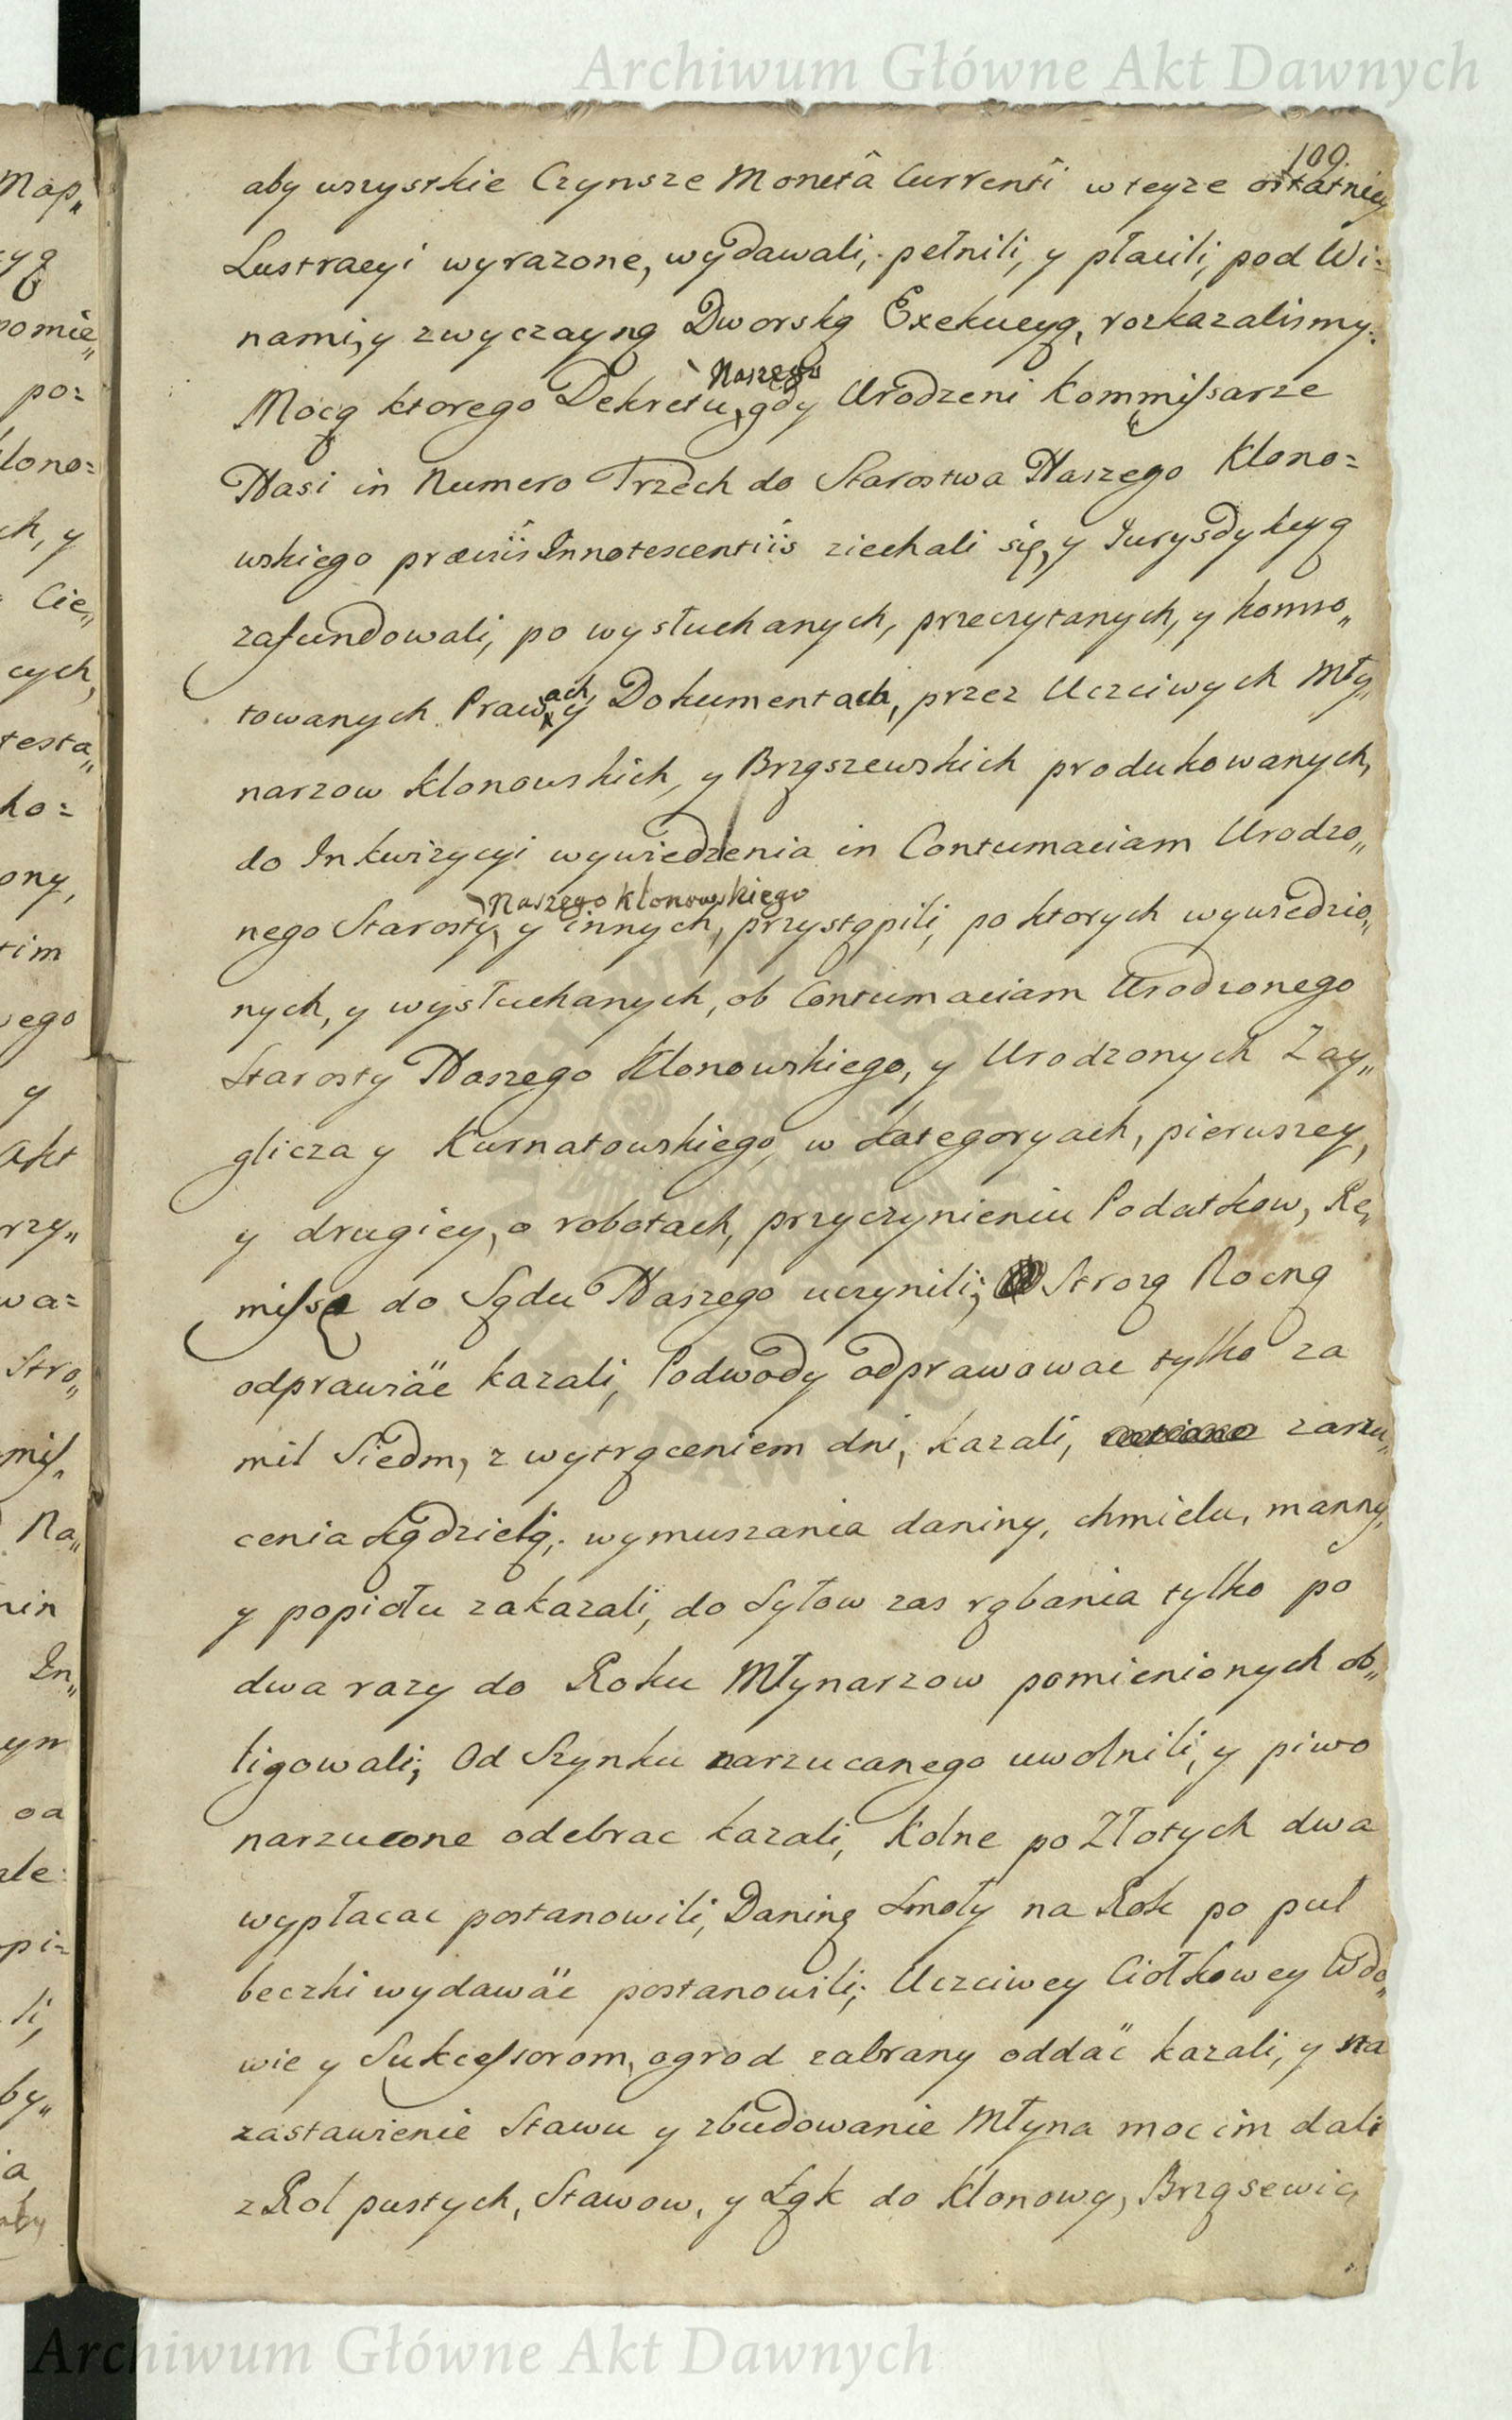 Archiwum Główne Akt Dawnych
109.
aby wszystkie Czynsze Monetâ Currenti w teyze ostatniey
Lustracyi wyrazone, wydawali, pełnili, y płacili, pod Wi=
nami, y zwyczayną Dworską Exekucyą, rozkazalismy.
Mocą ktorego Dekretu Naszego gdy Urodzeni Kommissarze
Nasi in Numero Trzech do Starostwa Naszego Klono=
wskiego præviis Innotescentiis ziechali się, y Jurysdykcyą
zafundowali, po wysłuchanych, przeczytanych, y konno„
towanych Prawach y Dokumentach, przez Uczciwych Mły„
narzow Klonowskich, y Brzęszewskich produkowanych,
do Inkwizycyi wywiedzenia in Contumaciam Urodzo„
nego Starosty Naszego Klonowskiego y innych, przystąpili, po ktorych wywiedzio„
nych, y wysłuchanych, ob Contumaciam Urodzonego
Starosty Naszego Klonowskiego, y Urodzonych Zay„
glicza y Kurnatowskiego, w Kategoryach, pierwszey,
y drugiey, o robotach, przyczynieniu Podatkow, Re„
missę do Sądu Naszego uczynili; Strozą Nocną
odprawiać kazali, Podwody odprawowac tylko za
mil Siedm, z wytrąceniem dni, kazali, zarzu„
cenia Kądzielą, wymuszania daniny, chmielu, manny,
y popiołu zakazali, do Syłow zas rąbania tylko po
dwa razy do Roku Młynarzow pomienionych ob„
ligowali; Od Szynku narzucanego uwolnili, y piwo
narzucone odebrac kazali, Kolne po Złotych dwa
wypłacac postanowili, Daninę Smoły na Rok po puł
beczki wydawać postanowili; Uczciwey Ciołkowey Wdo„
wie y Sukcessorom, ogrod zabrany oddać kazali, y na
zastawienie Stawu y zbudowanie Młyna moc im dali
z Rol pustych, Stawow, y Łąk do Klonowy, Brząsewic
Archiwum Główne Akt Dawnych